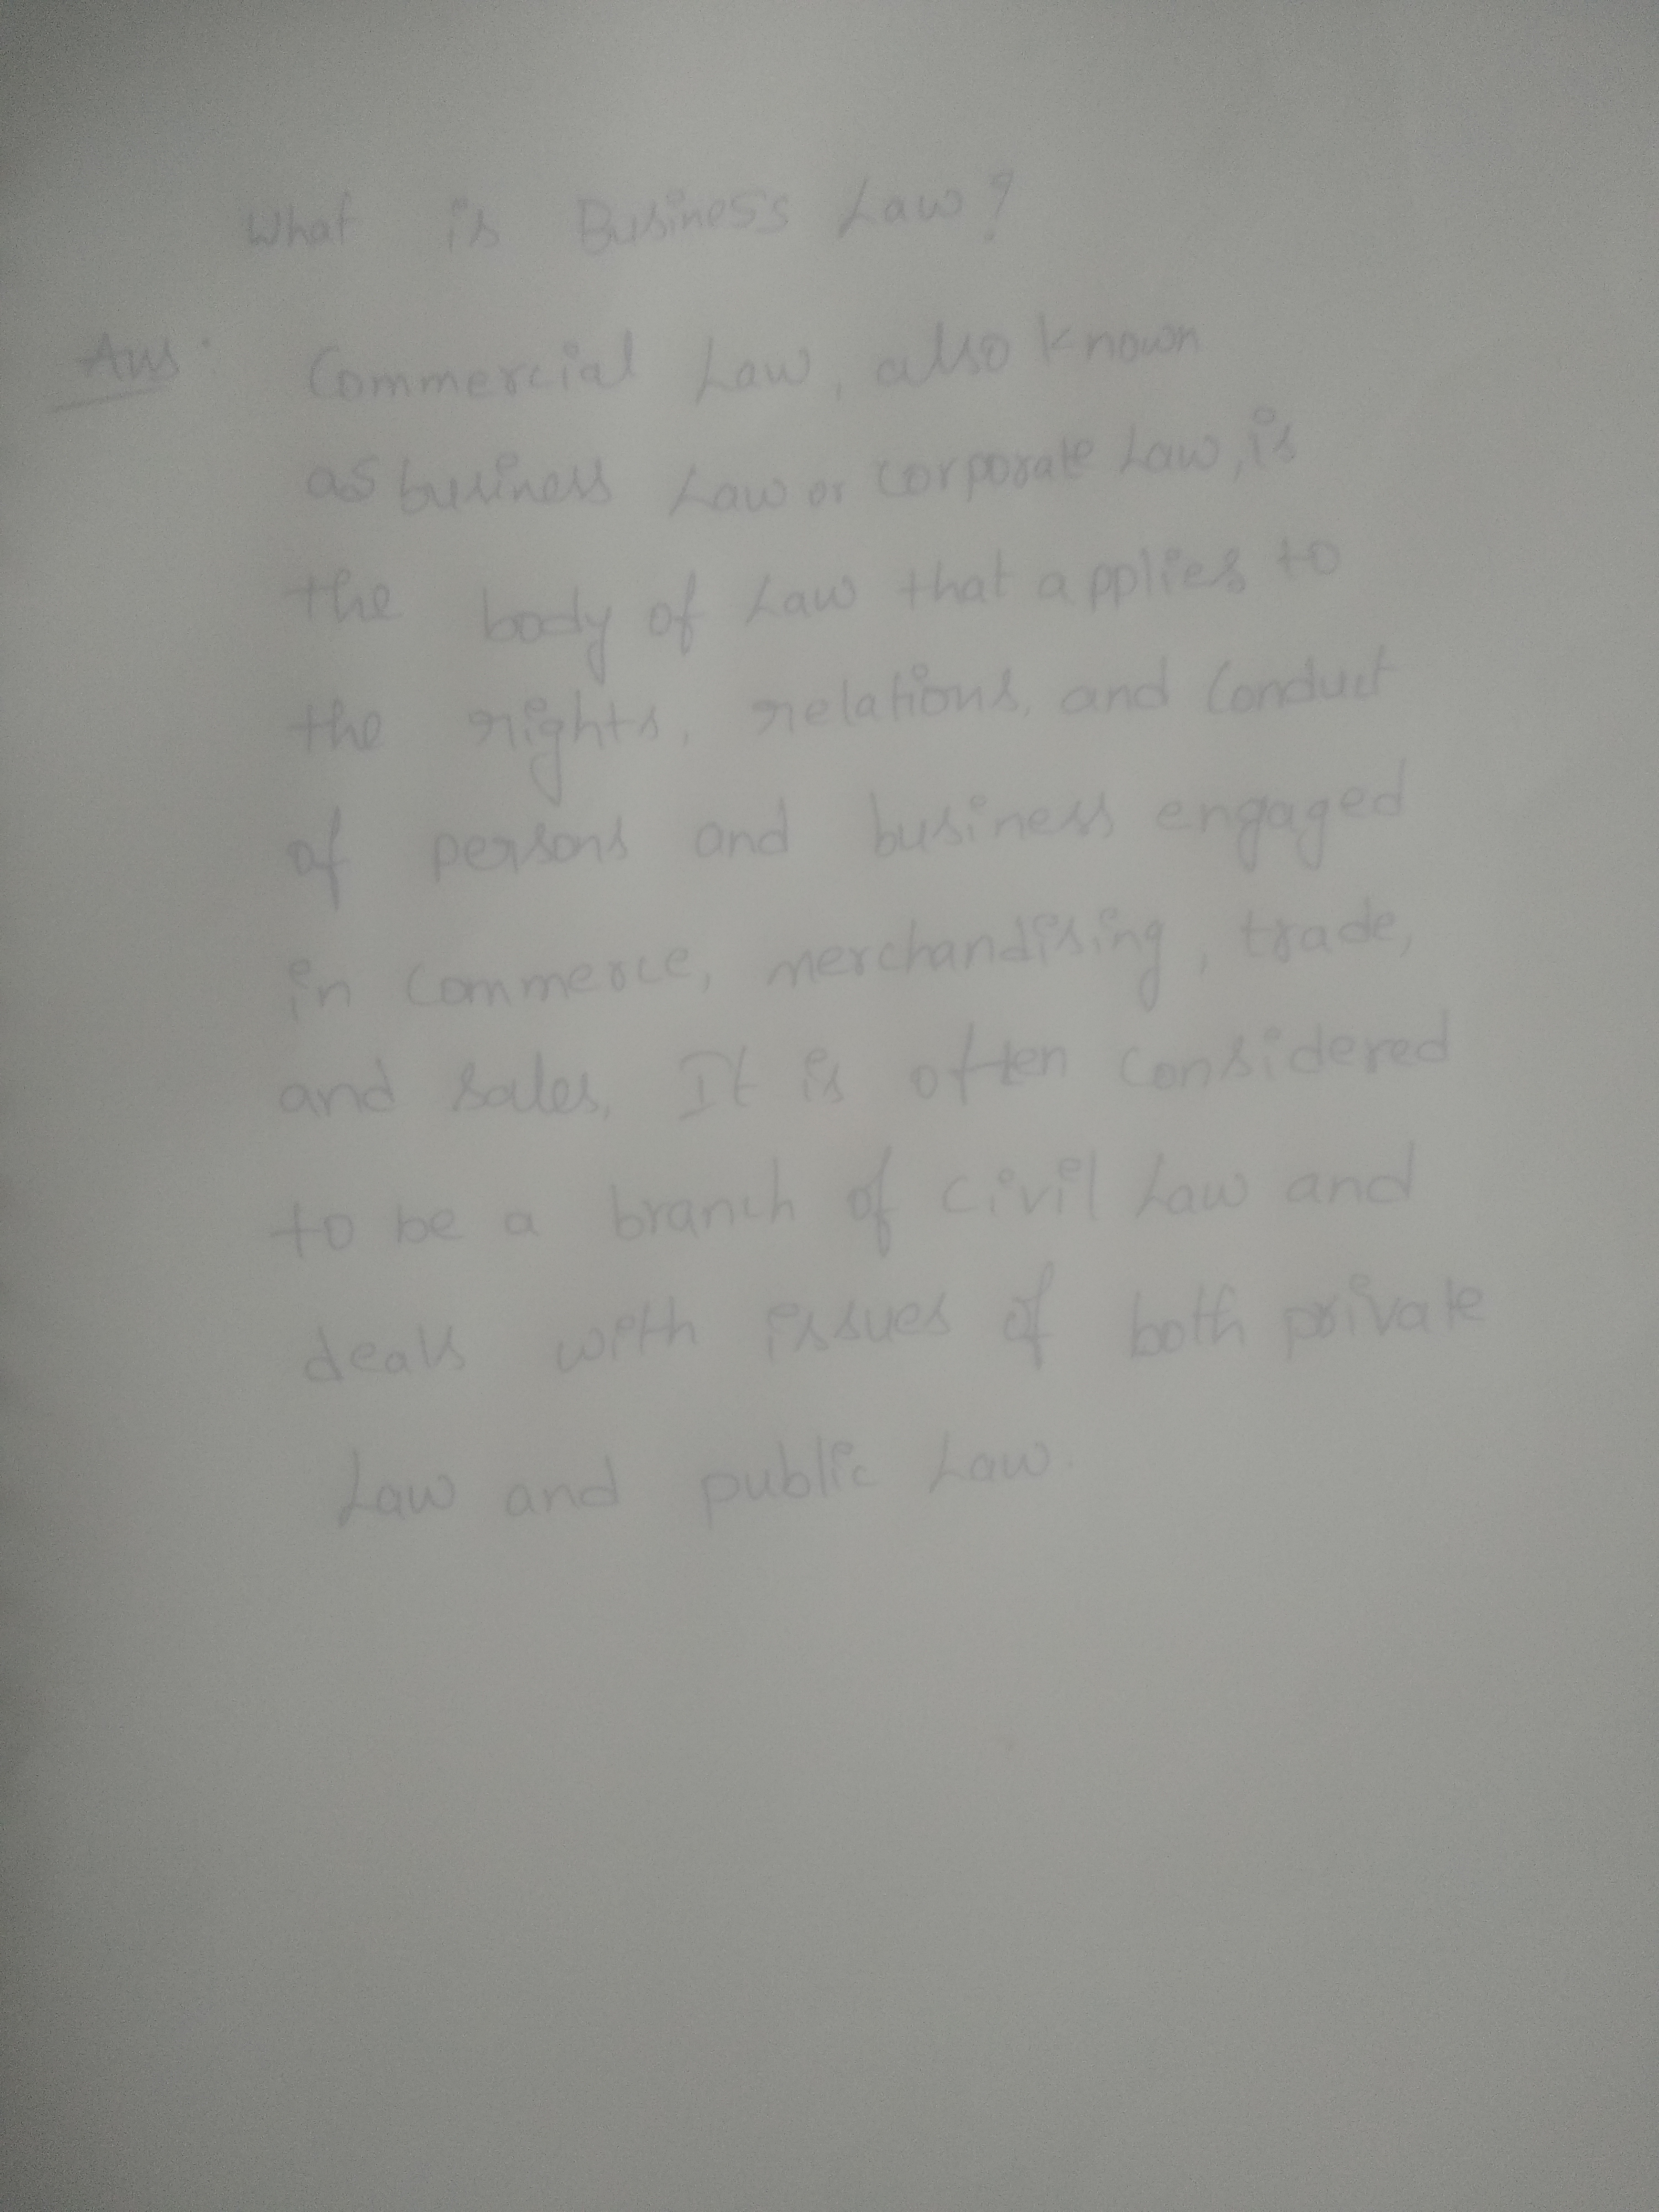 What is Business Law?
Ans: Commercial Law, also known
as business Law or corporate Law, is
the body of Law that applies to
the rights, relations, and Conduct
of persons and business engaged
in Commerce, merchandising, trade,
and sales. It is often considered
to be a branch of civil Law and
deals with issues of both private
Law and public Law.